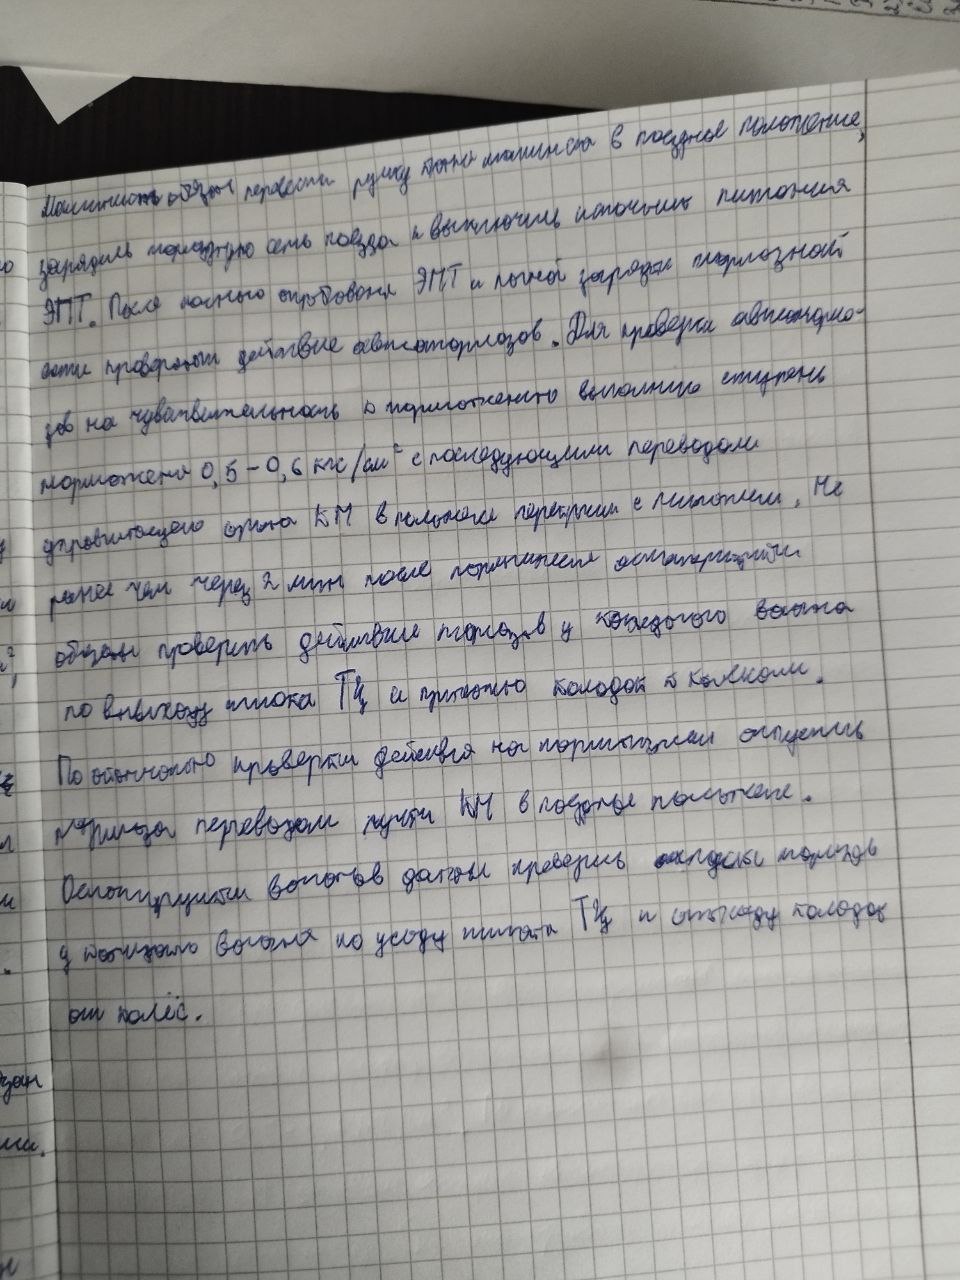 Машинист обязан перевести ручку крана машиниста в поездное положение,
зарядить тормозную сеть поезда и выключить источник питания
ЭПТ. После полного опробования ЭПТ и полной зарядки тормозной
сети проверяют действие автотормозов. Для проверки автотормо-
зов на чувствительность к торможению выполнить ступень
торможения 0,5-0,6 кгс/см² с последующим переводом
управляющего органа КМ в положение перекрыши с питанием. Не
ранее чем через 2 мин после торможения осмотрщики
обязаны проверить действие тормозов у каждого вагона
по выходу штока ТЦ и прижатию колодок к колёсам.
По окончанию проверки действия на торможении отпустить
тормоза переводом ручки КМ в поездное положение.
Осмотрщики вагонов должны проверить отпуск тормозов
у каждого вагона по уходу штока ТЦ и отходу колодок
от колёс.